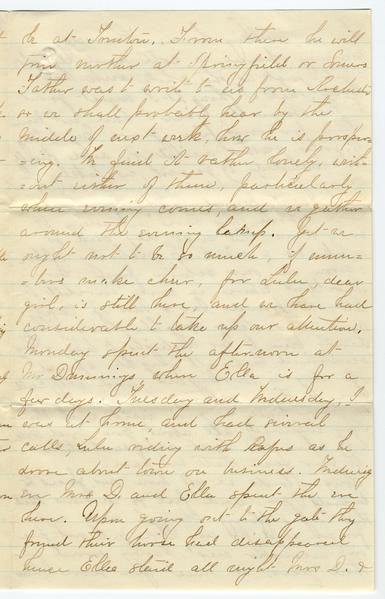 be at Taunton. From there he will
join mother at Springfield or Somers
Father was to write to us from Rochester
so we shall probably hear by the
middle of next week, how he is prosper=
=ing. We find it rather lonely, with=
=out either of them, particularly
when evening comes, and we gather
around the evening lamp. Yet we
ought not to be so much, if num=
=bers make cheer, for Lulu, dear
girl, is still here, and we have had
considerable to take up our attention.
Monday spent the afternoon at
Mr Dunnings where Ella is for a
few days. Tuesday and Wednesday, I
was at home, and had several
calls, Lulu riding with Rufus as he
drove about town on business. Wednes
eve Mrs D. and Ella spent the eve
here. Upon going out to the gate they
found their horse had disappeared
hence Ella staid all night Mrs D. &